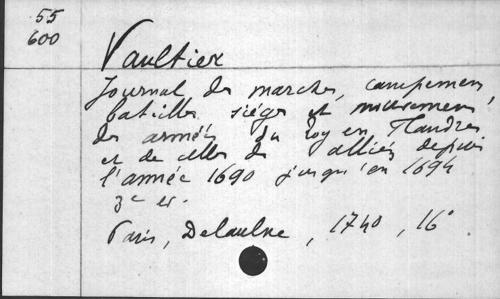 55
600
Vaultier
Journal des marches, campemens,
batailles, sièges et mouvemens
des armées du Roy en Flandres
et de celles des alliés depuis
l'année 1690 jusqu'en 1694
3e ex.
Paris, Delaulne, 1740, 16°